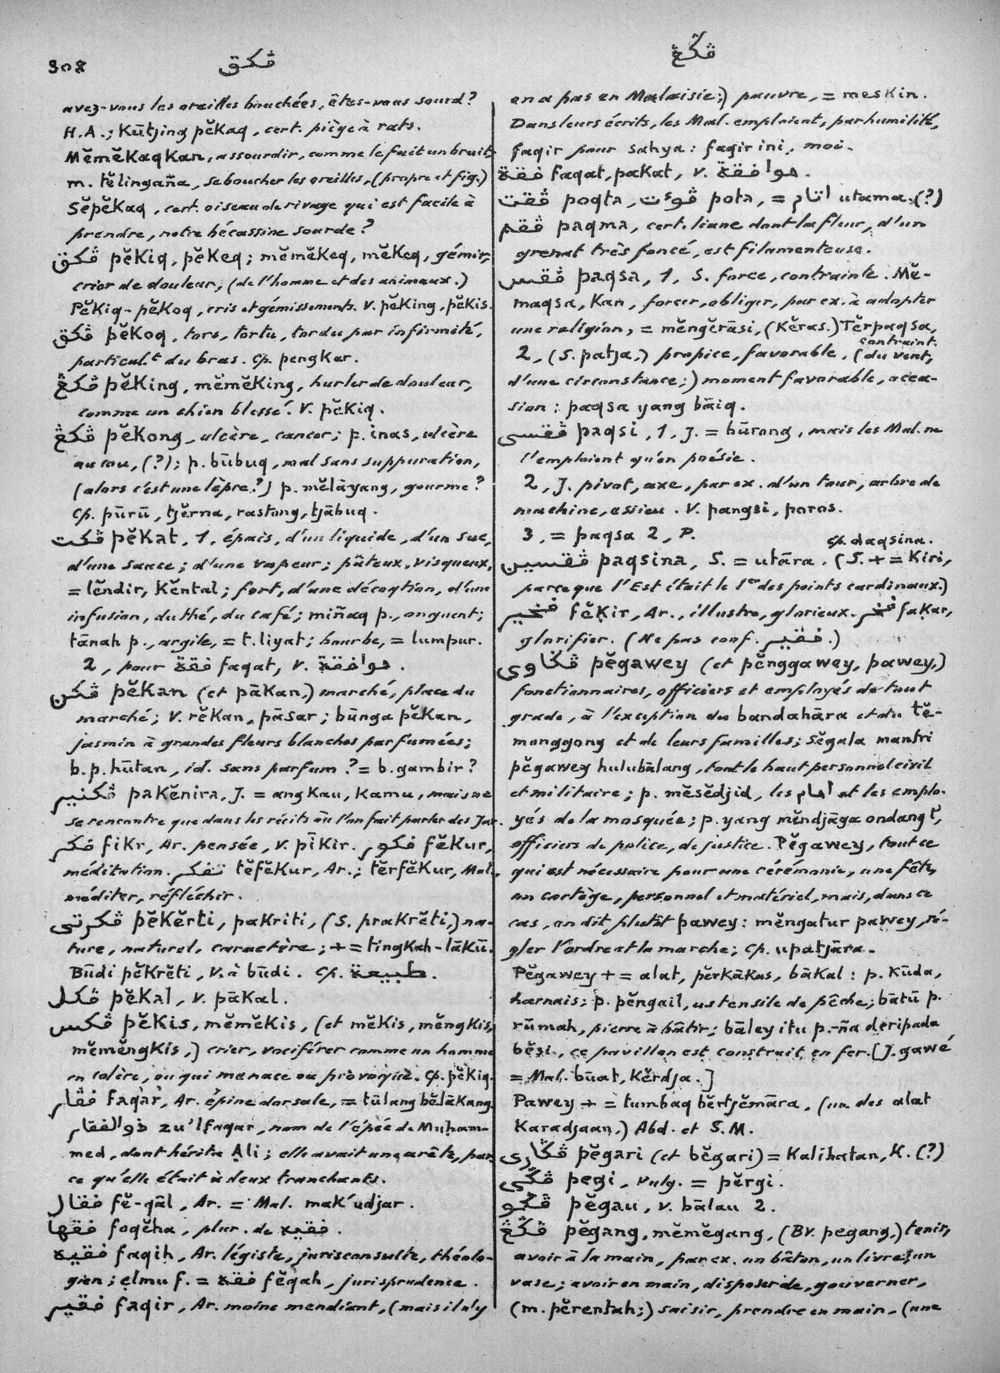 308
ڤکق
ڤڬڠ
avez-vous les oreilles bouchées, êtes-vous sourd?
H.A.; Kūtjing pĕkaq, cert. piège à rats.
Mĕmĕkaqkan, assourdir, comme le fait un bruit
m. tĕlingaña, se boucher les oreilles, (propre et fig.)
Sĕpĕkaq, cert. oiseau de rivage qui est facile à
prendre, notre bécassine sourde?
ڤکق pĕkiq, pĕkeq; mĕmĕkeq, mĕkeq, gémir,
crier de douleur, (de l'homme et des animaux.)
Pĕkiq-pĕkoq, cris et gémissements. V. pĕking, pĕkis.
ڤکق pĕkoq, tors, tortu, tordu par infirmité,
particul.t du bras. Cp. pengkar.
ڤکڠ pĕking, mĕmĕking, hurler de douleur,
comme un chien blessé. V. pĕkiq.
ڤکڠ pĕkong, ulcère, cancer; p. inas, ulcère
au cou, (?); p. būbuq, mal sans suppuration,
(alors c'est une lèpre?) p. mĕlāyang, gourme?
Cp. pūrū, tjĕrna, rastong, tjābuq.
ڤکت pĕkat, 1, épais, d'un liquide, d'un suc,
d'une sauce; d'une vapeur; pâteux, visqueux,
= lĕndir, kĕntal; fort, d'une décoction, d'une
infusion, du thé, du café; miñaq p., onguent;
tānah p., argile, = t. liyat; bourbe, = lumpur.
2, pour فقة faqat, V. موافقة.
ڤکن pĕkan (et pākan,) marché, place du
marché; V. rĕkan, pāsar; būnga pĕkan,
jasmin à grandes fleurs blanches parfumées;
b. p. hūtan, id. sans parfum? = b. gambir?
ڤکنير pakĕnira, J. = angkau, kamu, mais ne
se rencontre que dans les récits où l'on fait parler des Jav.
فکر fikr, Ar. pensée, V. pīkir. فکور fĕkur,
méditation. تفکر tĕfĕkur, Ar.; tĕrfĕkur, Mal.
méditer, réfléchir.
ڤکرتي pĕkĕrti, pakriti, (S. prakrĕti,) na-
ture, naturel, caractère; + = tingkah-lākū.
Būdi pĕkrĕti, V. à būdi. Cp. طبيعة.
ڤکل pĕkal, V. pākal.
ڤکس pĕkis, mĕmĕkis, (et mĕkis, mĕngkis,
mĕmĕngkis,) crier, vociférer comme un homme
en colère, ou qui menace ou provoque. Cp. pĕkiq.
فقار faqār, Ar. épine dorsale, = tūlang bĕlākang.
ذوالفقار zu'lfaqar, nom de l'épée de Muḥam-
med, dont hérita Ali; elle avait une arête, par
ce qu'elle était à deux tranchants.
فقال fĕ-qāl, Ar. = Mal. mak'udjar.
فقها foqĕha, plur. de فقيه.
فقيه faqih, Ar. légiste, jurisconsulte, théolo-
gien; elmu f. = فقه fĕqah, jurisprudence.
فقير faqir, Ar. moine mendiant, (mais il n'y
en a pas en Malaisie;) pauvre, = meskin.
Dans leurs écrits, les Mal. emploient, par humilité,
faqir pour sahya: faqir ini, moi.
فقة faqat, pakat, V. موافقة.
ڤقت poqta, ڤوت pota, = اتام utama. (?)
ڤقم paqma, cert. liane dont la fleur, d'un
grenat très foncé, est filamenteuse.
ڤقس paqsa, 1, S. force, contrainte. Mĕ-
maqsa, kan, forcer, obliger, par ex. à adopter
une religion, = mĕngĕrāsi, (kĕras.) Tĕrpaqsa,
contraint.
2, (S. patja,) propice, favorable, (du vent,
d'une circonstance;) moment favorable, occa-
sion: paqsa yang bāiq.
ڤقسي paqsi, 1, J. = būrong, mais les Mal. ne
l'emploient qu'en poésie.
2, J. pivot, axe, par ex. d'un tour, arbre de
machine, essieu. V. pangsi, poros.
3, = paqsa 2, P.
cp. daqsina.
ڤقسين paqsina, S. = utāra. (S. + = kiri,
parce que l'Est était le 1er des points cardinaux.)
فخير fĕḳir, Ar., illustre, glorieux. فخر faḳar,
glorifier. (Ne pas conf. فقير.)
ڤڬاوي pĕgawey (et pĕnggawey, pawey,)
fonctionnaires, officiers et employés de tout
grade, à l'exception du bandahāra et du tĕ-
monggong et de leurs familles; Sĕgala mantri
pĕgawey hulubālang, tout le haut personnel civil
et militaire; p. mĕsĕdjid, les امام et les emplo-
yés de la mosquée; p. yang mĕndjāga ondang²,
officiers de police, de justice. Pĕgawey, tout ce
qui est nécessaire pour une cérémonie, une fête,
un cortège, personnel et matériel, mais, dans ce
cas, on dit plutôt pawey: mĕngatur pawey, ré-
gler l'ordre et la marche; Cp. upatjāra.
Pĕgawey + = alat, pĕrkākas, bākal: p. kūda,
harnais; p. pĕngail, ustensile de pêche; bātū p.
rūmah, pierre à bâtir; bāley itu p.-ña deripada
bĕsi, ce pavillon est construit en fer. [J. gawé
= Mal. būat, kĕrdja.]
Pawey + = tumbaq bĕrtjĕmāra, (un des alat
karadjaan.) Abd. et S.M.
ڤڬاري pĕgari (et bĕgari) = kalihatan, K. (?)
ڤڬي pegi, vulg. = pĕrgi.
ڤڬو pĕgau, v. bālau 2.
ڤڬڠ pĕgang, mĕmĕgang, (Bv. pegang,) tenir,
avoir à la main, par ex. un bâton, un livre, un
vase; avoir en main, disposer de, gouverner,
(m. pĕrentah;) saisir, prendre en main, (une